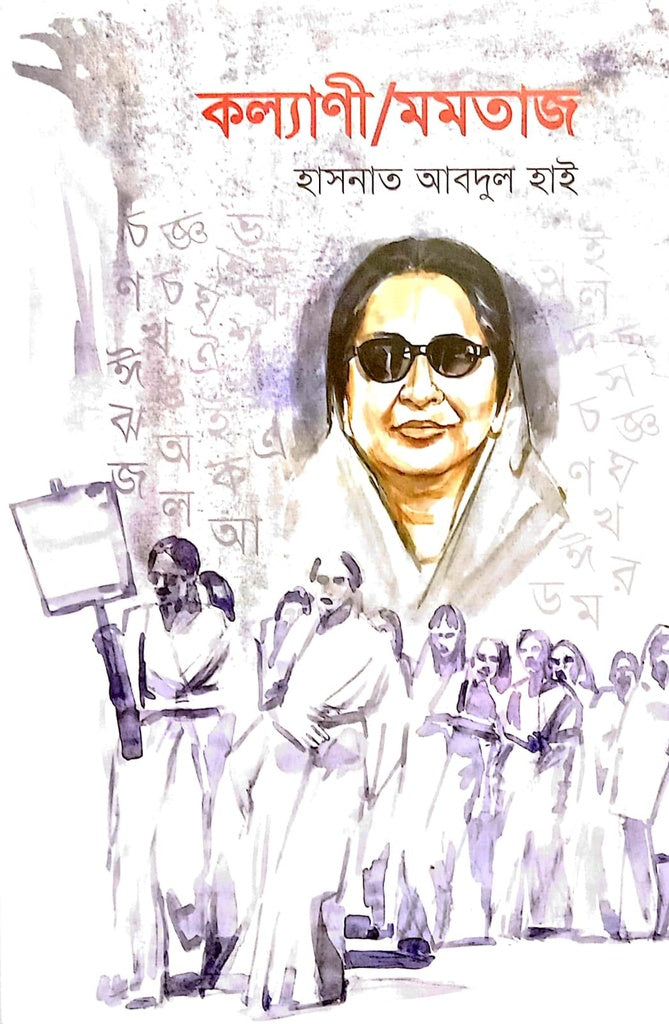 কল্যাণী/মমতাজ
হাসনাত আবদুল হাই
চ জ্ঞ ভ
ণ চ ঘ
ঈ খ ঐ
ঝ অ হ এ
জ ল ক
আ
স
চ জ্ঞ
ণ ঘ
ঈ খ
ড ম র